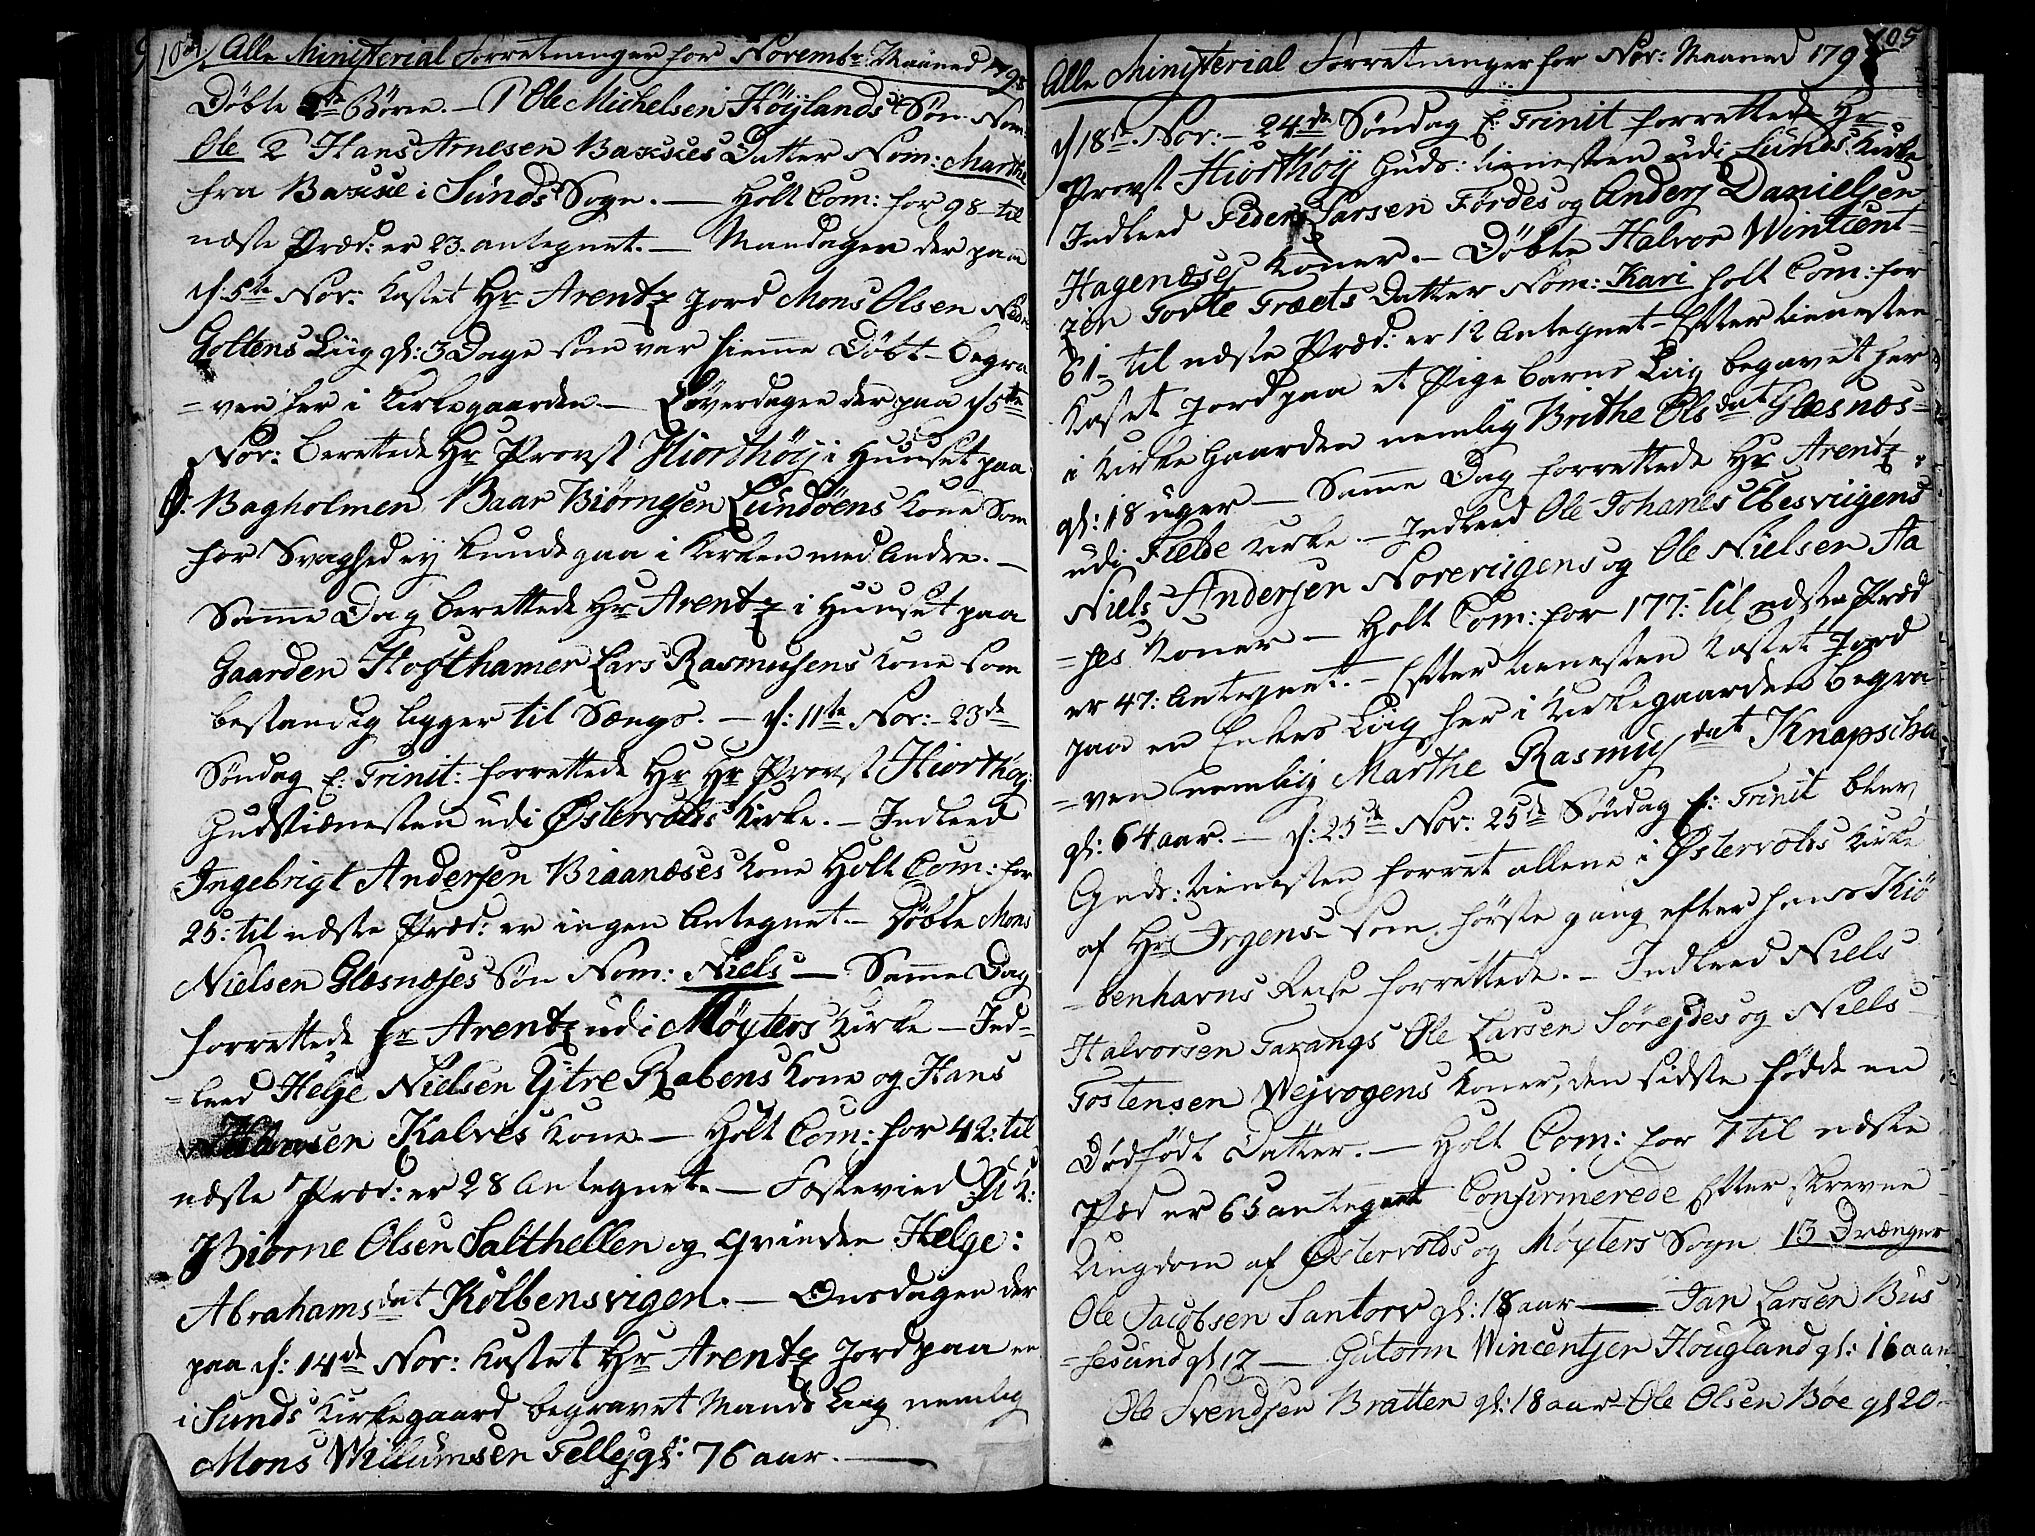 104 Alle Ministerial Forretninger for Novembr Maaned 1798
Døbte 2de Børn. – 1 Ole Michelsen Høylands Søn Nom:
Ole 2 Hans Arnesen Baxses Datter Nom: Marthe
fra Baxse i Sunds Sogn. – Holt Com: for 98 til
næste Præd: er 23. antegnet. – Mandagen der paa
d: 5te Nor: Kastet Hr Arentz Jord Mons Olsen Nedre
Goltens Liig gl: 3 Dage som var hiemme Døbt – begra
=ven her i Kirkegaarden – Løverdagen der paa d
Nor: berettede Hr Provst Hiorthøy i Huuset paa
Bagholmen Baar Biørnsen Lundøens Kone som
for Svaghed ey kunde gaa i Kirken med Andre. –
Samme Dag berettede Hr Arentz i Huuset paa
Gaarden Hogthamer Lars Rasmusens Kone som
bestandig ligger til Sængs. – d: 11te Nor: – 23de
Søndag E: Trinit: forrettede Hr Hr Provst Hiorthøy:
Gudstienesten udi Østervolds Kirke. – Indleed
Ingebrigt Andersen Biaanæses Kone Holt Com: for
25: til næste Præd: er ingen Antegnet – Døbte Mons
Nielsen Glæsnæses Søn Nom: Niels – Samme Dag
forrettede hr Arentz udi Møgters Kirke – Ind=
=leed Helje Nielsen Ytre Rabens Kone og Hans
Kalves Kone. – Holt Com: for 42: til
næste Præd: er 28 Antegnet. – Festevied U: K:
Biorne Olsen Salthellen og Qvinden Helge:
Abrahamsdat Kolbensvigen. – Onsdagen der
paa d: 14de Nor: Kastet Hr Arentz Jord paa en
i Sunds Kirkegaard begravet Mands Liig nemlig
Mons Willumsen Telles gl: 76 aar. –
Alle Ministerial Forretninger for Nor: Maaned 1798 105
d 18de Nor: – 24de Søndag E: Trinit forrettede Hr
Provst Hiorthøy Guds: tienesten udi Sunds: Kirke
Indleed Peder Larsen Førdes og Anders Danielsen
Hagenæses Koner. – Døbte Halvor Wintsent=
zen Tofte Træets Datter Nom: Kari holt Com: for
61 – til næste Præd: er 12 Antegnet – Efter tienesten
Kastet Jord paa et Pige barns Liig begravet her
i Kirke Gaarden nemlig Brithe Olsdat Glæsnæs=
gl: 18 uger – Samme Dag forrettede Hr Arentz
udi Fielde Kirke – Indleed Ole Johanes Ebesviigens
Niels Andersen Noreviigens og Ole Nielsen Aa
=ses Koner – Holt Com: for 177: til næste Præd
er 47: Antegnet. – Efter tienesten Kastet Jord
paa en Enkes Liig her i Kirkegaarden begra
=ven nemlig Marthe Rasmusdat Knapscha
gl: 64 aar. – d: 25de Nor: 25de Søndag E: Trinit blev
Guds: tienesten forret allene i Østervolds Kirke
af Hr Irgens – som første gang efter hans Kiø
=benhavns Reise forrettede. – Indleed Niels
Halvorsen Tarangs Ole Larsen Sørejdes og Niels
Tostensen Wejvogens Koner, den sidste fødde en
Dødfødt Datter. – Holt Com: for 7 til næste
Præd er 65 antegnet Confirmerede Efter skrevne
Ungdom af Østervolds og Møgters Sogn 13 Drænger
Ole Jacobsen Santorv gl: 18 aar – Jan Larsen Bus
=sesund gl 17 – Gutorm Wincentsen Hougland gl: 16 aar
Ole Svendsen Bratten gl: 18 aar Ole Olsen Bøe gl 20